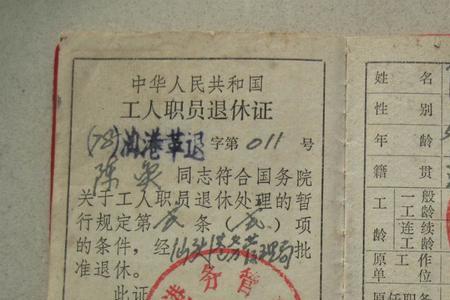 中华人民共和国
工人职员退休证
(78)汕港革退字第 011 号
陈 同志符合国务院
关于工人职员退休处理的暂
行规定第 条( )项
的条件,经汕头港务管理局批
准退休。
此证
港务管
姓名
性别
年龄
籍贯
工龄
一般工龄
连续工龄
原工作
原任职